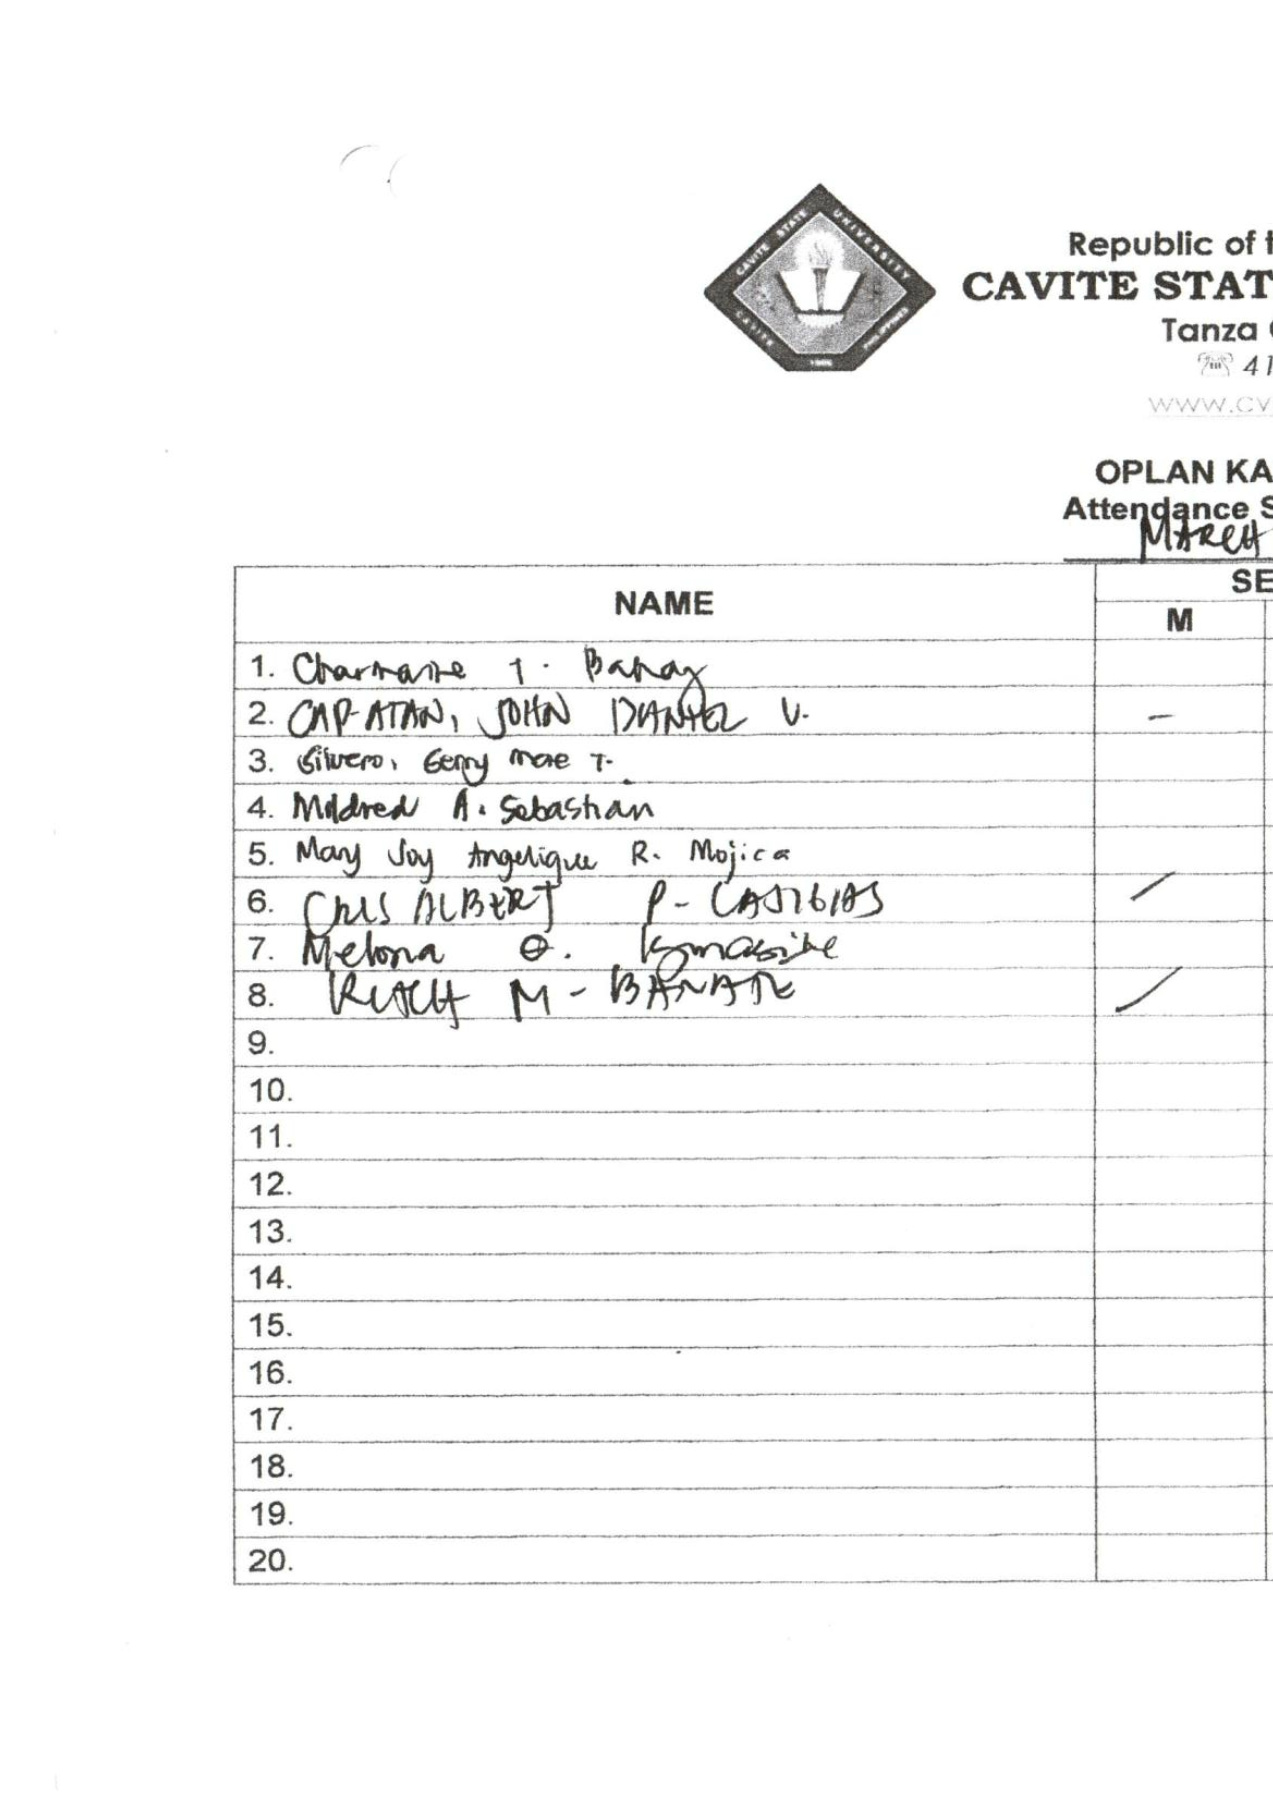 CAVITE STATE UNIVERSITY
CAVITE PHILIPPINES
Republic of t
CAVITE STAT
Tanza
☏ 41
www.cv
OPLAN KA
Attendance S
MARCH
NAME SE
M
1. Charmaine T.
2. CAPATAN, JOHN DANIEL V. -
3. Silvero, Gerry Mae T.
4. Mildred A. Sebastian
5. Mary Joy Angelique R. Mojica
6. CHRIS ALBERT P- /
7. Melona O.
8. M - BANATE /
9.
10.
11.
12.
13.
14.
15.
16.
17.
18.
19.
20.